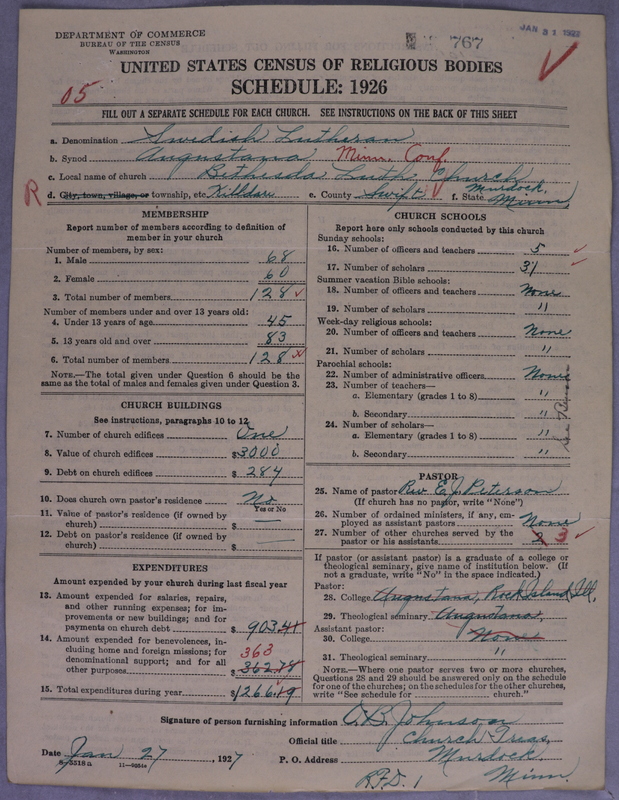 DEPARTMENT OF COMMERCE
BUREAU OF THE CENSUS
WASHINGTON
767
JAN 31 1927
UNITED STATES CENSUS OF RELIGIOUS BODIES
SCHEDULE: 1926
05
FILL OUT A SEPARATE SCHEDULE FOR EACH CHURCH. SEE INSTRUCTIONS ON THE BACK OF THIS SHEET
a. Denomination Swedish Lutheran
b. Synod Augustana Minn. Conf.
c. Local name of church Bethesda Luth. Church
R d. City, town, village, or township, etc. Killdare e. County Swift f. State Murdock, Minn.
MEMBERSHIP
Report number of members according to definition of
member in your church
Number of members, by sex:
1. Male 68
2. Female 60
3. Total number of members 128
Number of members under and over 13 years old:
4. Under 13 years of age 45
5. 13 years old and over 83
6. Total number of members 128
NOTE.—The total given under Question 6 should be the
same as the total of males and females given under Question 3.
CHURCH BUILDINGS
See instructions, paragraphs 10 to 12
7. Number of church edifices One
8. Value of church edifices $3000
9. Debt on church edifices $ 284
10. Does church own pastor's residence No
Yes or No
11. Value of pastor's residence (if owned by
church) $ —
12. Debt on pastor's residence (if owned by
church) $ —
EXPENDITURES
Amount expended by church during last fiscal year
13. Amount expended for salaries, repairs,
and other running expenses; for im-
provements or new buildings; and for
payments on church debt $ 903.41
14. Amount expended for benevolences, in-
cluding home and foreign missions; for
denominational support; and for all
other purposes 363 $ 362.78
15. Total expenditures during year $1266.19
CHURCH SCHOOLS
Report here only schools conducted by this church
Sunday schools:
16. Number of officers and teachers 5
17. Number of scholars 31
Summer vacation Bible schools:
18. Number of officers and teachers None
19. Number of scholars "
Week-day religious schools:
20. Number of officers and teachers None
21. Number of scholars "
Parochial schools:
22. Number of administrative officers None
23. Number of teachers—
a. Elementary (grades 1 to 8) "
b. Secondary "
24. Number of scholars—
a. Elementary (grades 1 to 8) "
b. Secondary "
PASTOR
25. Name of pastor Rev. E. J. Peterson
(If church has no pastor, write "None")
26. Number of ordained ministers, if any, em-
ployed as assistant pastors None
27. Number of other churches served by the
pastor or his assistants 2 3
If pastor (or assistant pastor) is a graduate of a college or
theological seminary, give name of institution below. (If
not a graduate, write "No" in the space indicated.)
Pastor:
28. College Augustana, Rock Island, Ill.
29. Theological seminary Augustana,
Assistant pastor:
30. College None
31. Theological seminary "
NOTE.—Where one pastor serves two or more churches,
Questions 28 and 29 should be answered only on the schedule
for one of the churches; on the schedules for the other churches,
write "See schedule for church."
Signature of person furnishing information O. B. Johnson
Official title Church Treas.
Date Jan 27, 1927 P. O. Address Murdock,
R.F.D. 1 Minn.
8—5518 a